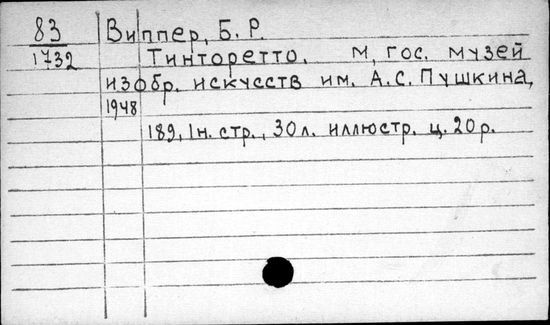 83 Виппер, Б. Р.
1732 Тинторетто. М, гос. музей
изобр. искусств им. А.С. Пушкина,
1948
189, 1н. стр., 30л. иллюстр. ц. 20р.